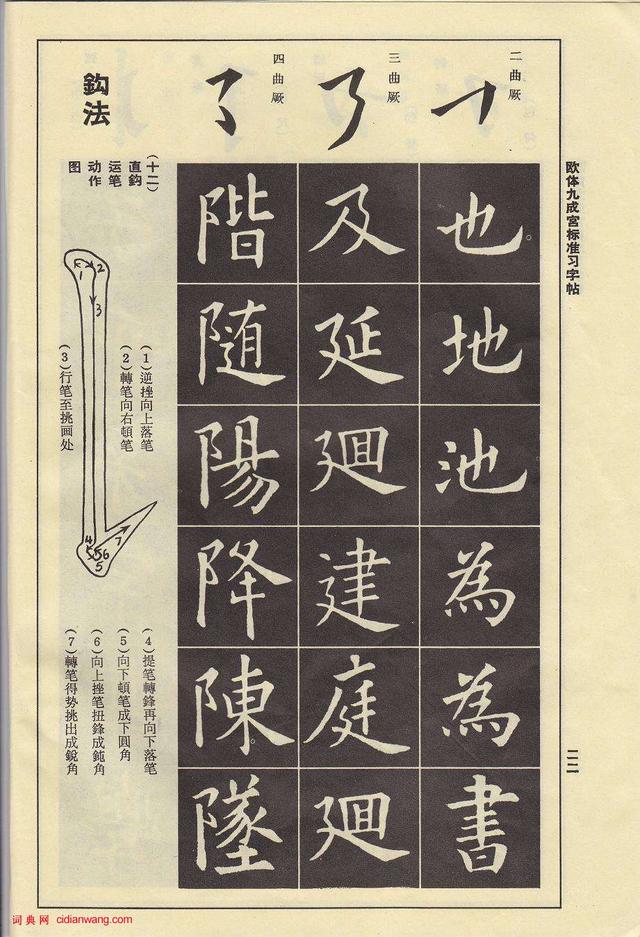 欧体九成宫标准习字帖
二二
二曲厥
也地池為為書
三曲厥
及延廻建庭廻
四曲厥
階随陽降陳墜
鈎法
(十二)
直鈎
运笔
动作
图
(1)逆挫向上落笔
(2)轉笔向右頓笔
(3)行笔至挑画处
(4)提笔轉鋒再向下落笔
(5)向下頓笔成下圓角
(6)向上挫笔扭鋒成鈍角
(7)轉笔得势挑出成銳角
1
2
3
4
5
5
5
6
7
词典网 cidianwang.com